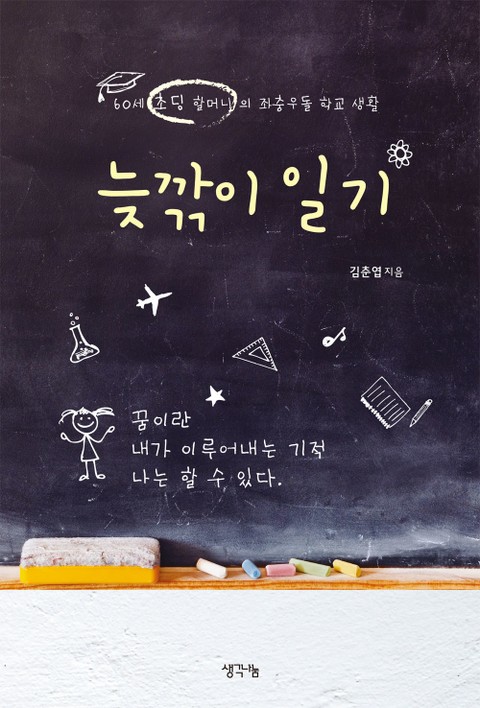 60세 초딩 할머니의 좌충우돌 학교 생활
늦깎이 일기
김춘엽 지음
꿈이란
내가 이루어내는 기적
나는 할 수 있다.
생각나눔